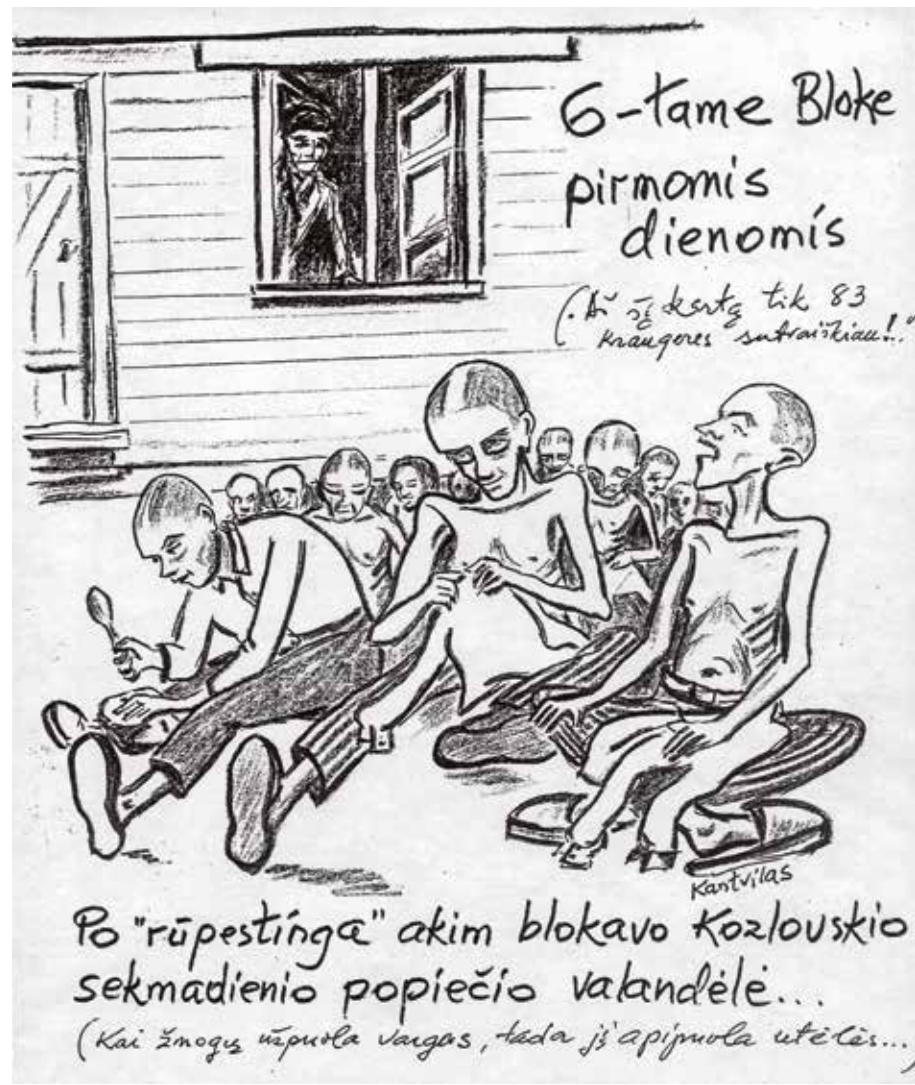 6-tame Bloke
pirmomis
dienomis
(„Aš šį kartą tik 83
kraugeres sutraiškiau!..“
Kantvilas
Po "rūpestinga" akim blokavo Kozlovskio
sekmadienio popiečio valandėlė...
(Kai žmogų užpuola vargas, tada jį apipuola utėlės...)